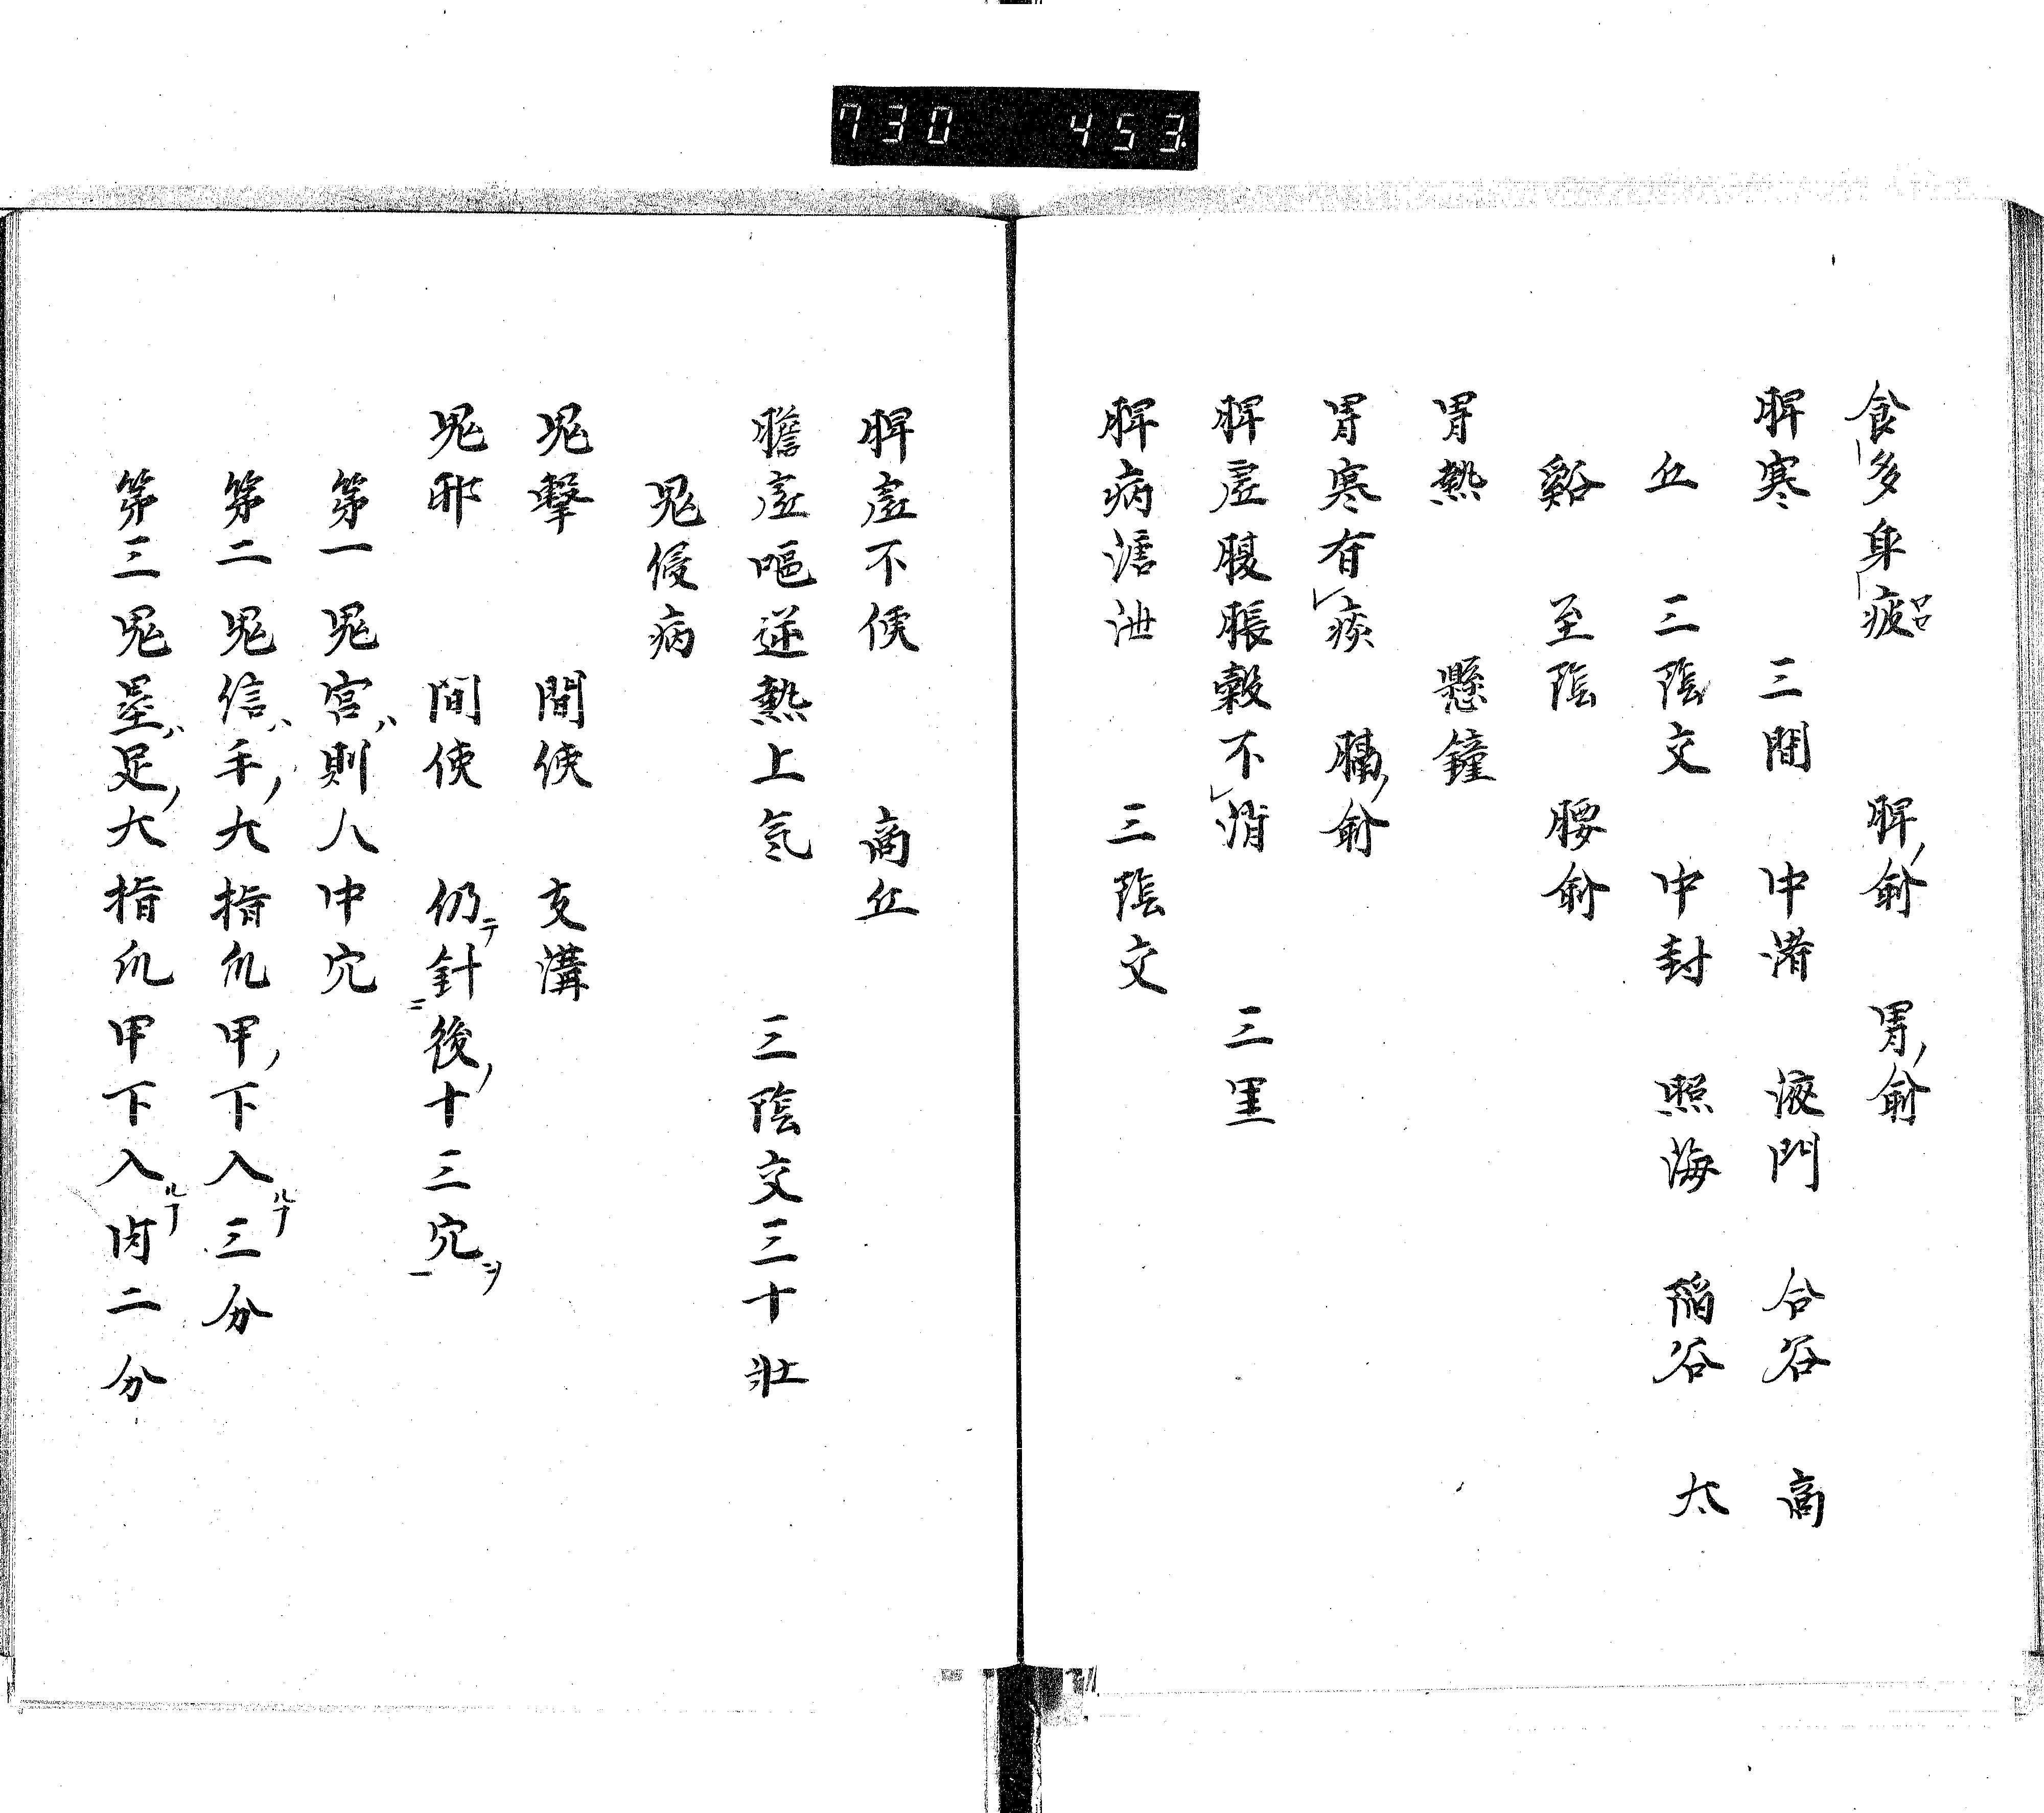 730 453
食多身疲 脾ノ俞 胃ノ俞
脾寒 三間 中渚 液門 合谷 商
丘 三陰交 中封 照海 陷谷 太
谿 至陰 腰俞
胃熱 懸鐘
胃寒有痰 膈ノ俞
脾虛腹脹穀不消 三里
脾病溏泄 三陰交
脾虛不便 商丘
膽虛嘔逆熱上氣 三陰交三十壯
鬼侵病
鬼擊 間使 支溝
鬼邪 間使 仍テ針ニ後ノ十三穴ヲ一
第一鬼宮ハ則人中穴
第二鬼信ハ手ノ大指爪甲ノ下入ルヿ三分
第三鬼壘ハ足ノ大指爪甲下入ルヿ肉二分